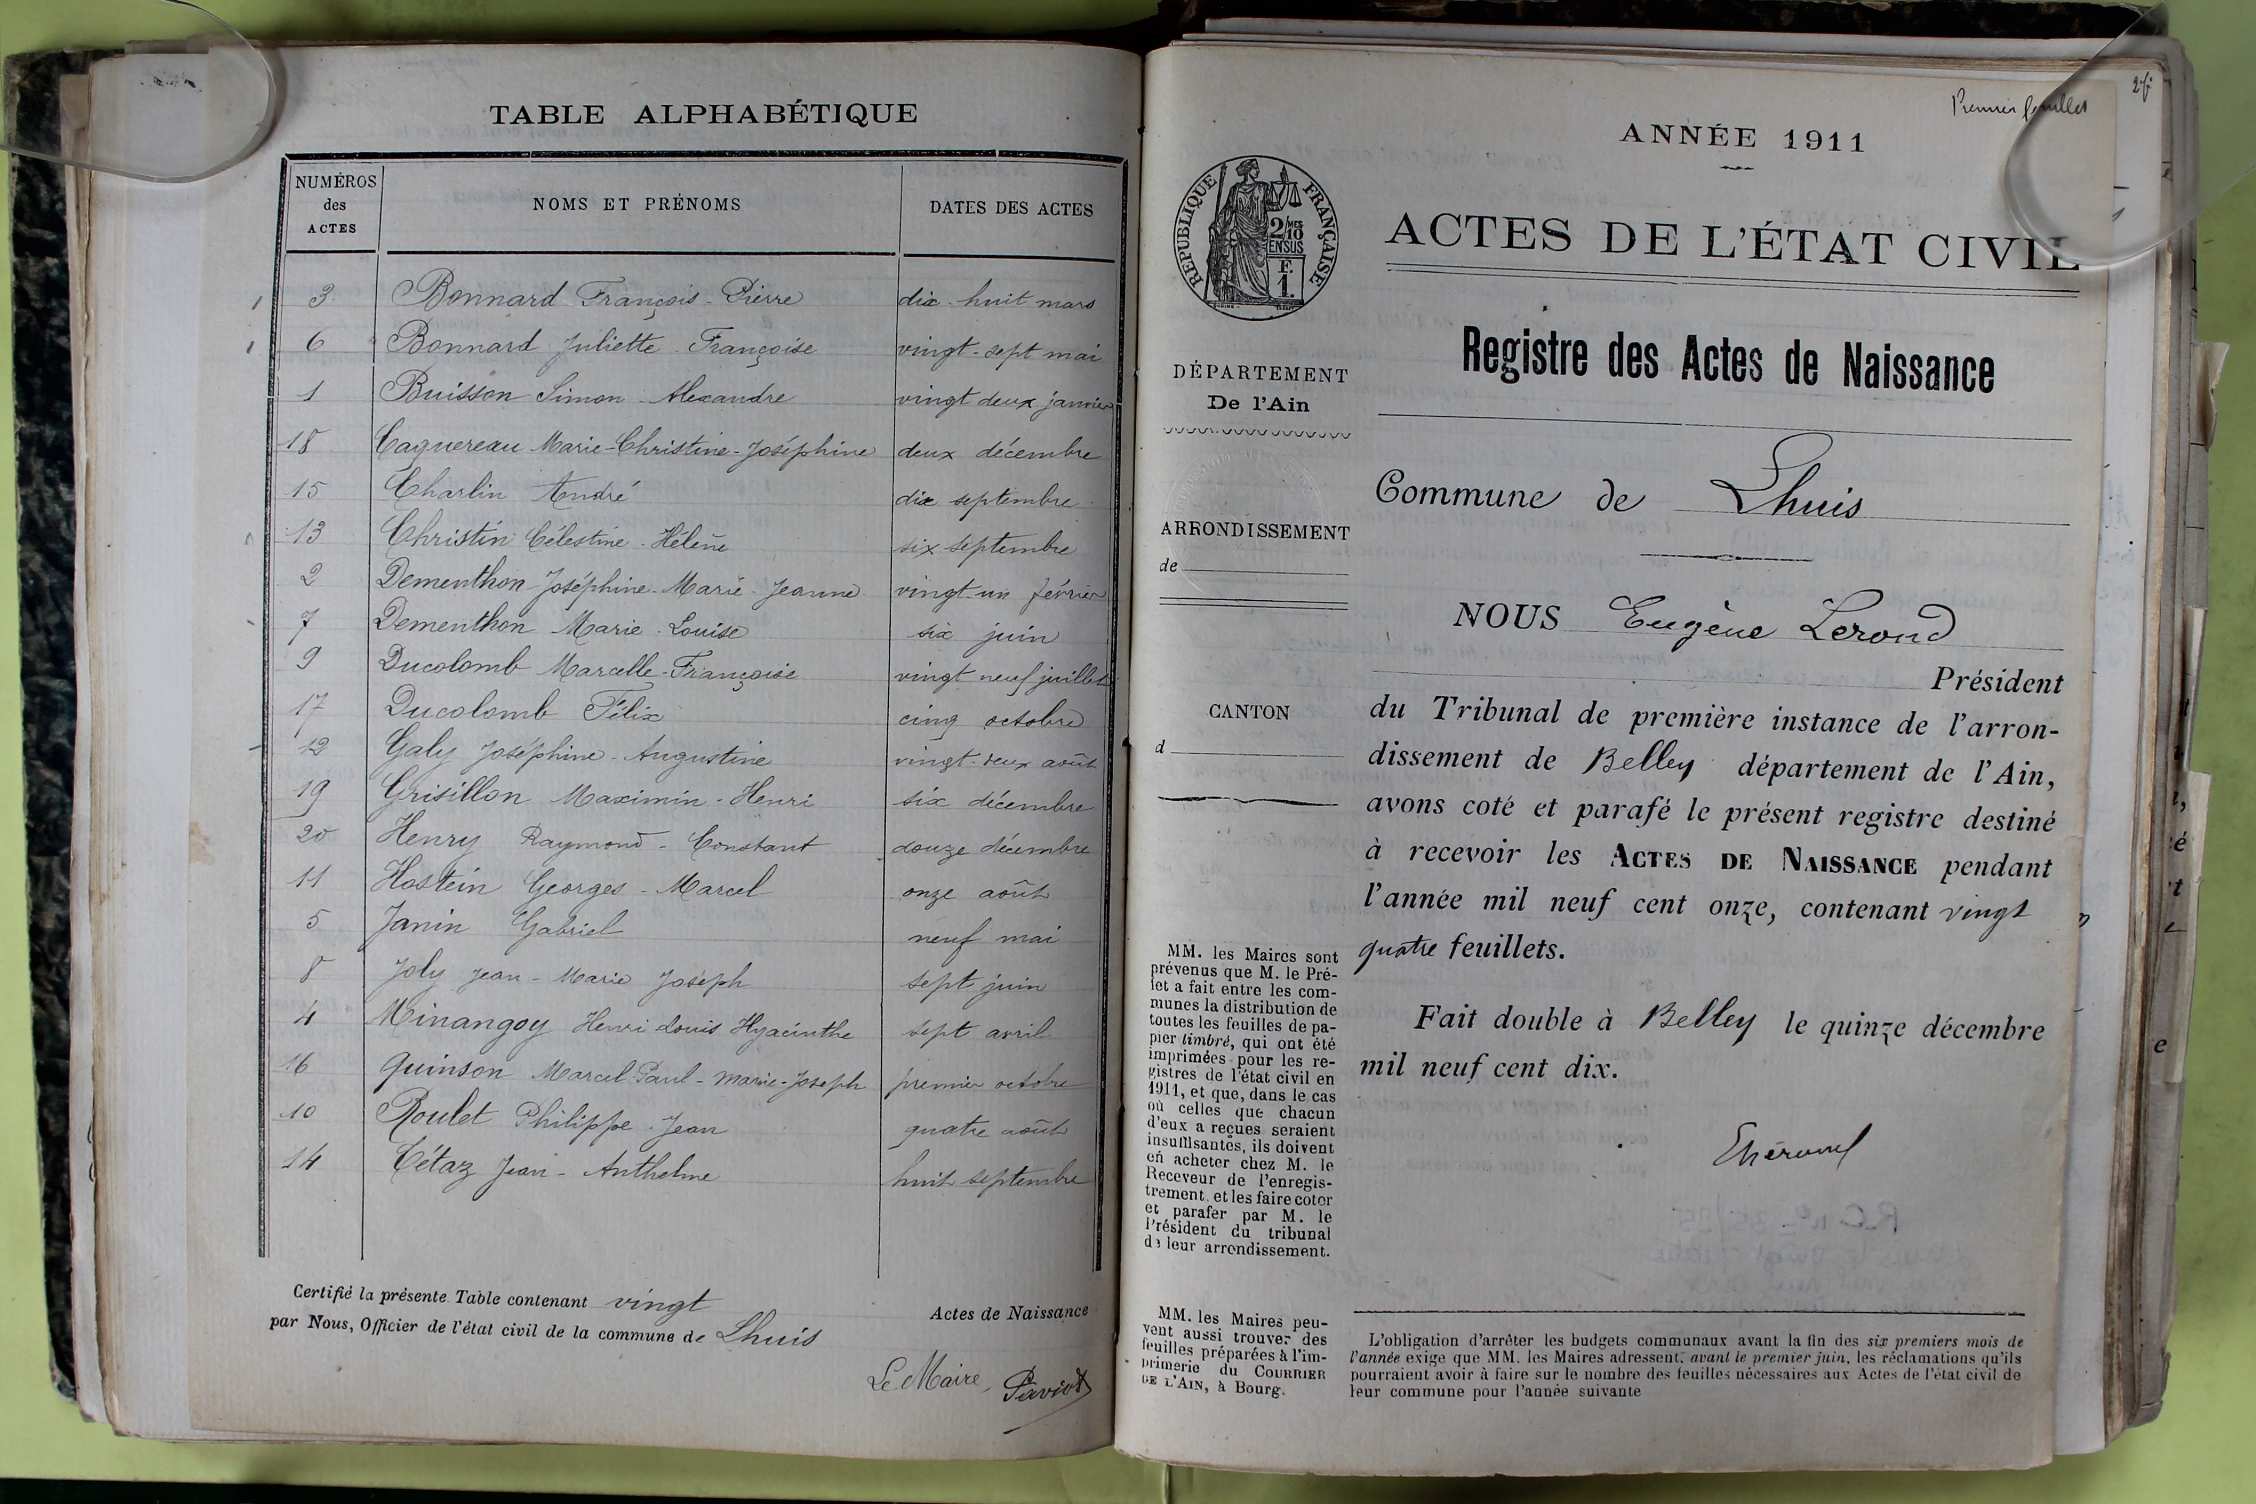 TABLE ALPHABÉTIQUE
NUMÉROS des ACTES
NOMS ET PRÉNOMS
DATES DES ACTES
3 Bonnard François-Pierre dix-huit mars
6 Bonnard Juliette Françoise vingt-sept mai
1 Buisson Simon Alexandre vingt deux janvier
18 Caquereau Marie-Christine-Joséphine deux décembre
15 Charlin André dix septembre
13 Christin Célestine-Hélène six septembre
2 Dementhon Joséphine-Marie-Jeanne vingt-un février
7 Dementhon Marie-Louise six juin
9 Ducolomb Marcelle-Françoise vingt neuf juillet
17 Ducolomb Félix cinq octobre
12 Galy Joséphine-Augustine vingt-deux août
19 Grisillon Maximin-Henri six décembre
20 Henry Raymond-Constant douze décembre
11 Hostein Georges-Marcel onze août
5 Janin Gabriel neuf mai
8 Joly Jean-Marie Joseph sept juin
4 Minangoy Henri Louis Hyacinthe sept avril
16 Quinson Marcel-Paul-Marie-Joseph premier octobre
10 Roulet Philippe-Jean quatre août
14 Tétaz Jean-Anthelme huit septembre
Certifié la présente Table contenant vingt Actes de Naissance
par Nous, Officier de l'état civil de la commune de Lhuis
Le Maire, Paviot
Premier feuillet
ANNÉE 1911
RÉPUBLIQUE FRANÇAISE
2/10 MES
EN SUS
F.
1.
ACTES DE L'ÉTAT CIVIL
Registre des Actes de Naissance
DÉPARTEMENT
De l'Ain
Commune de Lhuis
ARRONDISSEMENT
de
CANTON
d
NOUS Eugène Lerond
Président
du Tribunal de première instance de l'arron-
dissement de Belley département de l'Ain,
avons coté et parafé le présent registre destiné
à recevoir les ACTES DE NAISSANCE pendant
l'année mil neuf cent onze, contenant vingt
quatre feuillets.
Fait double à Belley le quinze décembre
mil neuf cent dix.
MM. les Maires sont
prévenus que M. le Pré-
fet a fait entre les com-
munes la distribution de
toutes les feuilles de pa-
pier timbré, qui ont été
imprimées pour les re-
gistres de l'état civil en
1911, et que, dans le cas
où celles que chacun
d'eux a reçues seraient
insuffisantes, ils doivent
en acheter chez M. le
Receveur de l'enregis-
trement et les faire coter
et parafer par M. le
Président du tribunal
de leur arrondissement.
MM. les Maires peu-
vent aussi trouver des
feuilles préparées à l'im-
primerie du COURRIER
DE L'AIN, à Bourg.
L'obligation d'arrêter les budgets communaux avant la fin des six premiers mois de
l'année exige que MM. les Maires adressent, avant le premier juin, les réclamations qu'ils
pourraient avoir à faire sur le nombre des feuilles nécessaires aux Actes de l'état civil de
leur commune pour l'année suivante